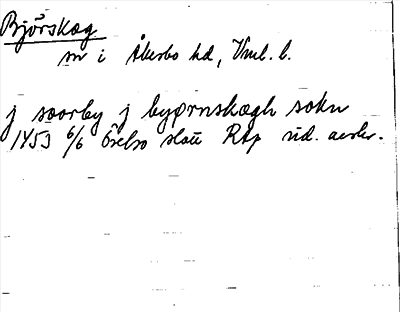 Björskog
sn i Åkerbo hd, Vml. l.
j soorby j byørnskogh sokn
1453 6/6 Örebro slott RAp nid. avskr.